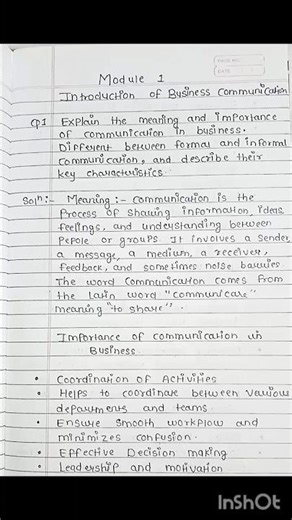 PAGE No.
DATE
Module 1
Introduction of Business Communication
Q.1 Explain the meaning and importance
of communication in business.
Different between formal and informal
communication, and describe their
key characteristics.
Soln:- Meaning :- communication is the
Process of sharing information, ideas,
feelings, and understanding between
Pepole or groups. It involves a sender,
a message, a medium, a receiver,
feedback, and sometimes noise barries.
The word communication comes from
the latin word "communicare"
meaning "to share".
Importance of communication in
Business
• Coordination of Activities
• Helps to coordinate between various
departments and teams.
• Ensure smooth workflow and
minimizes confusion.
• Effective Decision making
• Leadership and motivation
InShOt